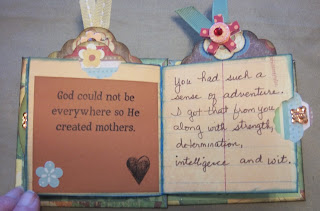 God could not be
everywhere so He
created mothers.
You had such a
sense of adventure.
I got that from you
along with strength,
determination,
intelligence and wit.